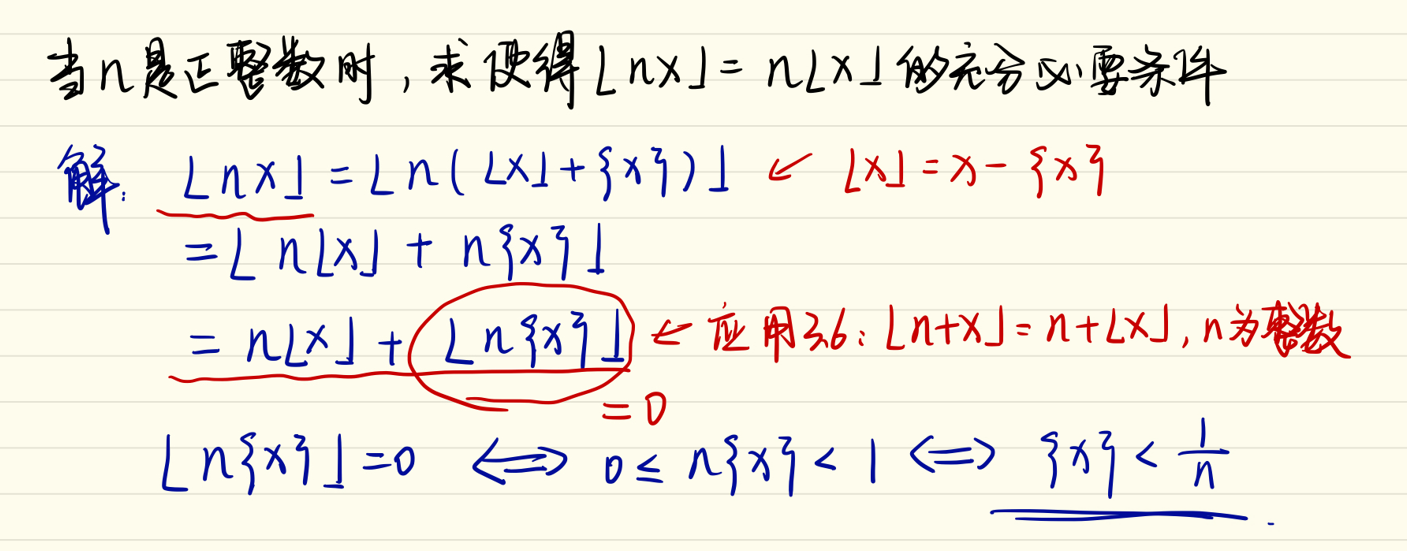 当n是正整数时,求使得⌊nx⌋=n⌊x⌋的充分必要条件
解: ⌊nx⌋=⌊n(⌊x⌋+{x})⌋ ← ⌊x⌋=x-{x}
=⌊n⌊x⌋+n{x}⌋
=n⌊x⌋+⌊n{x}⌋ ← 应用3.6:⌊n+x⌋=n+⌊x⌋,n为整数
=0
⌊n{x}⌋=0 ⟺ 0≤n{x}<1 ⟺ {x}<1/n.